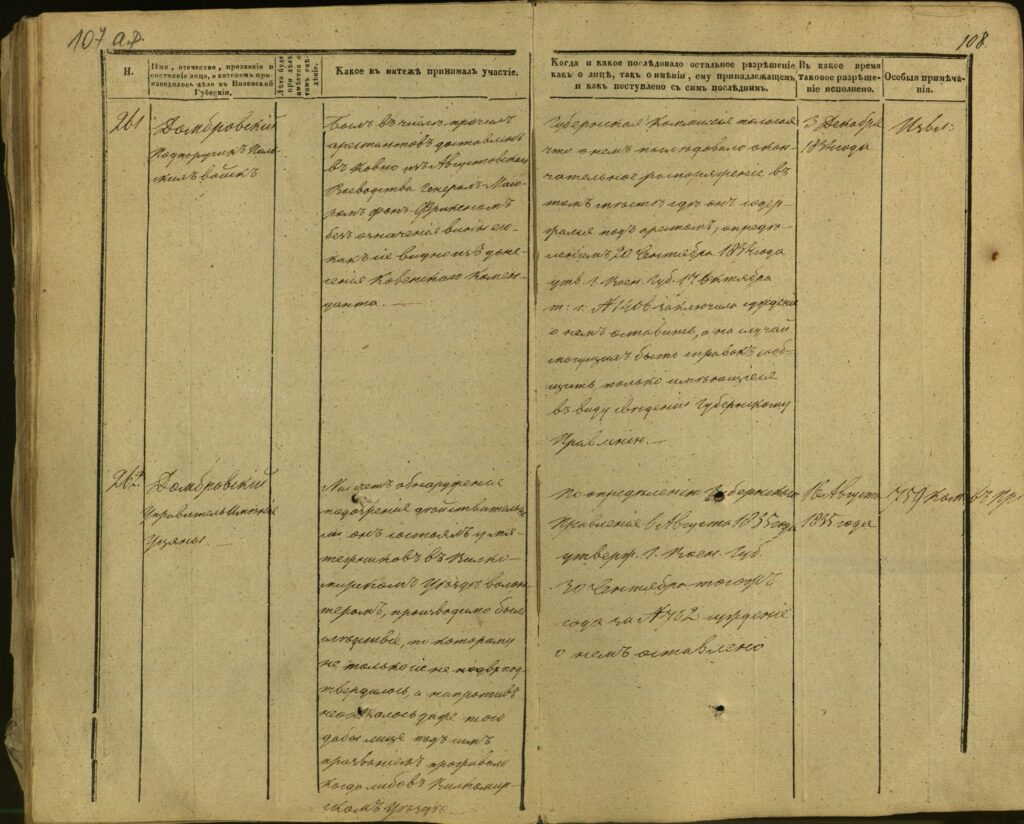 107 аф
108.
Н.
Имя, отчество, прозваніе и
состояніе лица, о которомъ про-
изводилось дѣло въ Виленской
Губерніи.
Какое въ мятежѣ принималъ участіе.
Когда и какое послѣдовало остальное разрѣшеніе
какъ о лицѣ, такъ о имѣніи, ему принадлежащемъ,
и какъ поступлено съ симъ послѣднимъ.
Въ какое время
таковое разрѣше-
ніе исполнено.
Особыя примѣча-
нія.
261
Домбровскій
Подпоручикъ Поль-
скихъ войскъ
Былъ въ числѣ прочихъ
арестантовъ доставленъ
въ Ковно изъ Августовскаго
Воеводства Генералъ-Маіо-
ромъ фонъ
безъ означенія вины его
какъ видно изъ доне-
сенія Ковенскаго Комен-
данта. —
Губернская Коммисія полагая
что о немъ послѣдовало окон-
чательное распоряженіе въ
томъ мѣстѣ гдѣ онъ содер-
жался подъ арестомъ, опредѣ-
леніемъ 20 Сентября 1834 года
утв. г. Воен. Губ. 17 Октября
т. г. № заключила сужденіе
о немъ оставить, а на случай
могущихъ быть справокъ сооб-
щить только имѣющіеся
въ виду свѣденіи Губернскому
Правленію. —
3 Декабря
1834 года
262.
Домбровскій
Управитель Имѣнія
Уцяны. —
обнаруженія
подозрѣнія дѣйствительно
ли онъ состоялъ у мя-
тежниковъ въ Вилко-
мирскомъ Уѣздѣ волон-
теромъ, производимо было
слѣдствіе, по которому
не только не под-
твердилось, а напротивъ
не оказалось даже того
дабы лице подъ симъ
прозваніемъ проживало
когда либо въ Вилкомир-
скомъ Уѣздѣ. —
По опредѣленію Губернскаго
Правленія Августа 1835 года
утверж. г. Воен. Губ.
30 Сентября тогожъ
года за № 752 сужденіе
о немъ оставлено
16 Августа
1835 года